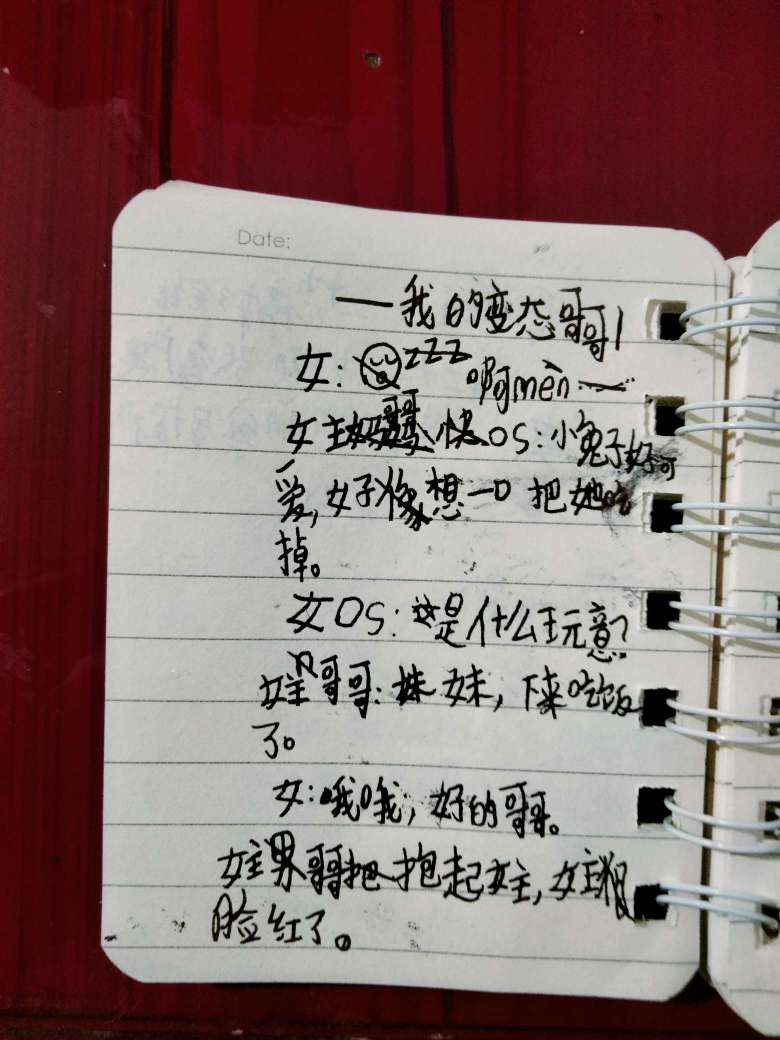 Date:
——我的变态哥哥1
女: zzz 啊mèn
女主哥哥OS:小兔子好可
爱,好像想一口把她吃
掉。
女OS:这是什么玩意?
女主哥哥:妹妹,下来吃饭
了。
女:哦哦,好的哥哥。
女主哥把抱起女主,女主
脸红了。